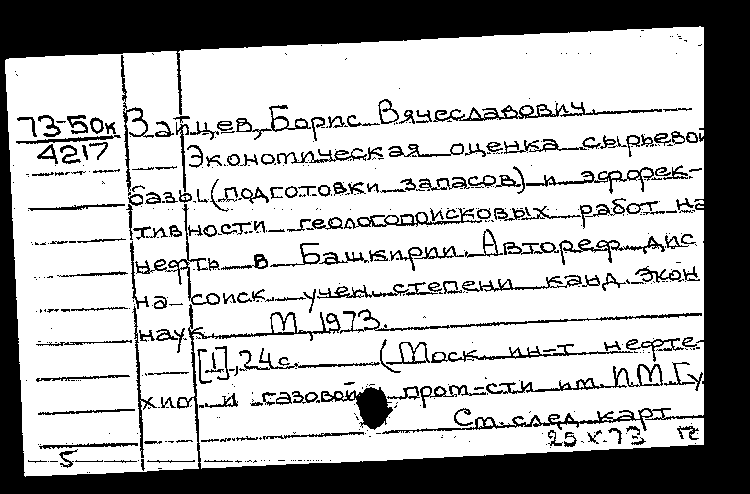 73-50к
4217
Зайцев, Борис Вячеславович.
Экономическая оценка сырьевой
базы (подготовки запасов) и эффек-
тивности геологопоисковых работ на
нефть в Башкирии. Автореф. дис.
на соиск. учен. степени канд. экон.
наук. М., 1973.
[1], 24 с. (Моск. ин-т нефте-
хим. и газовой пром-сти им. И.М. Гу
См. след. карт.
25.X.73
5